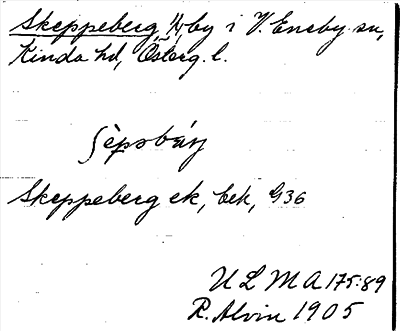 Skeppeberg, by i V. Eneby sn,
Kinda hd, Österg. l.
Skeppeberg ek, bek, G36
ULMA 175:89
R. Alvin 1905